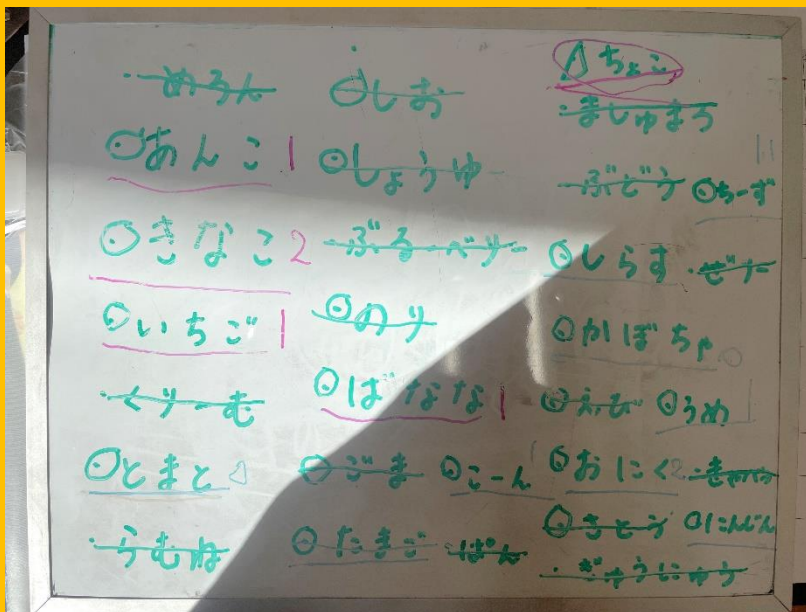 めろん
あんこ 1
きなこ 2
いちご 1
くりーむ
とまと
らむね
しお
しょうゆ
ぶるーべりー
のり
ばなな 1
ごま こーん 1
たまご ぱん
ちょこ
ましゅまろ
ぶどう ちーず
しらす ぜりー
かぼちゃ
えび うめ 1
おにく 2
さとう にんじん
ぎゅうにゅう